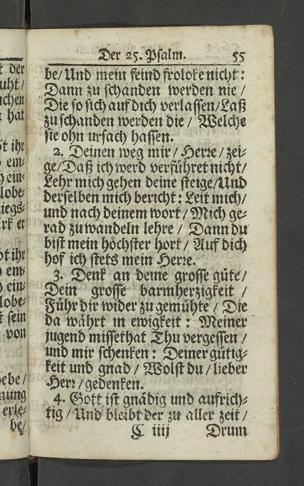 Der 25. Psalm. 55
be/Und mein feind froloke nicht:
Dann zu schanden werden nie/
Die so sich auf dich verlassen/Laß
zu schanden werden die/ Welche
sie ohn ursach hassen.
2. Deinen weg mir/ Herre/zei-
ge/Daß ich werd verführet nicht/
Lehr mich gehen deine steige/Und
derselben mich bericht: Leit mich/
und nach deinem wort/ Mich ge-
rad zu wandeln lehre/ Dann du
bist mein höchster hort/ Auf dich
hof ich stets mein Herre.
3. Denk an deine grosse güte/
Dein grosse barmherzigkeit/
Führ dir wider zu gemühte/ Die
da währt in ewigkeit: Meiner
jugend missethat Thu vergessen/
und mir schenken: Deiner gütig-
keit und gnad/ Wolst du/ lieber
Herr/ gedenken.
4. Gott ist gnädig und aufrich-
tig/ Und bleibt der zu aller zeit/
C iiij Drum